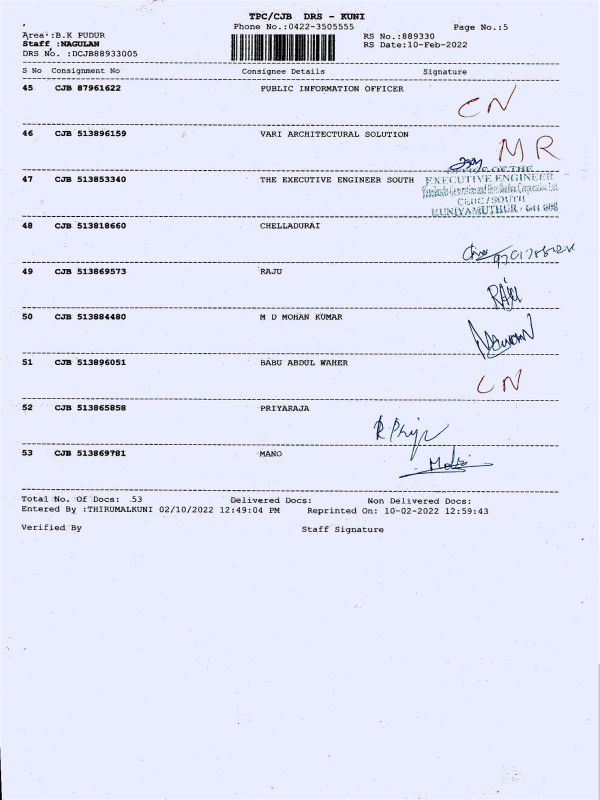 TPC/CJB DRS - KUNI
Phone No.:0422-3505555 Page No.:5
Area :B.K PUDUR RS No.:889330
Staff :NAGULAN RS Date:10-Feb-2022
DRS No. :DCJB88933005
S No Consignment No Consignee Details Signature
45 CJB 87961622 PUBLIC INFORMATION OFFICER
CN
46 CJB 513896159 VARI ARCHITECTURAL SOLUTION
MR
OFFICE OF THE
47 CJB 513853340 THE EXECUTIVE ENGINEER SOUTH EXECUTIVE ENGINEER
CEDC/SOUTH
KUNIYAMUTHUR - 641 008
48 CJB 513818660 CHELLADURAI
49 CJB 513869573 RAJU
RAJU
50 CJB 513884480 M D MOHAN KUMAR
51 CJB 513896051 BABU ABDUL WAHER
CN
52 CJB 513865858 PRIYARAJA
R.Priya
53 CJB 513869781 MANO
Total No. Of Docs: 53 Delivered Docs: Non Delivered Docs:
Entered By :THIRUMALKUNI 02/10/2022 12:49:04 PM Reprinted On: 10-02-2022 12:59:43
Verified By Staff Signature